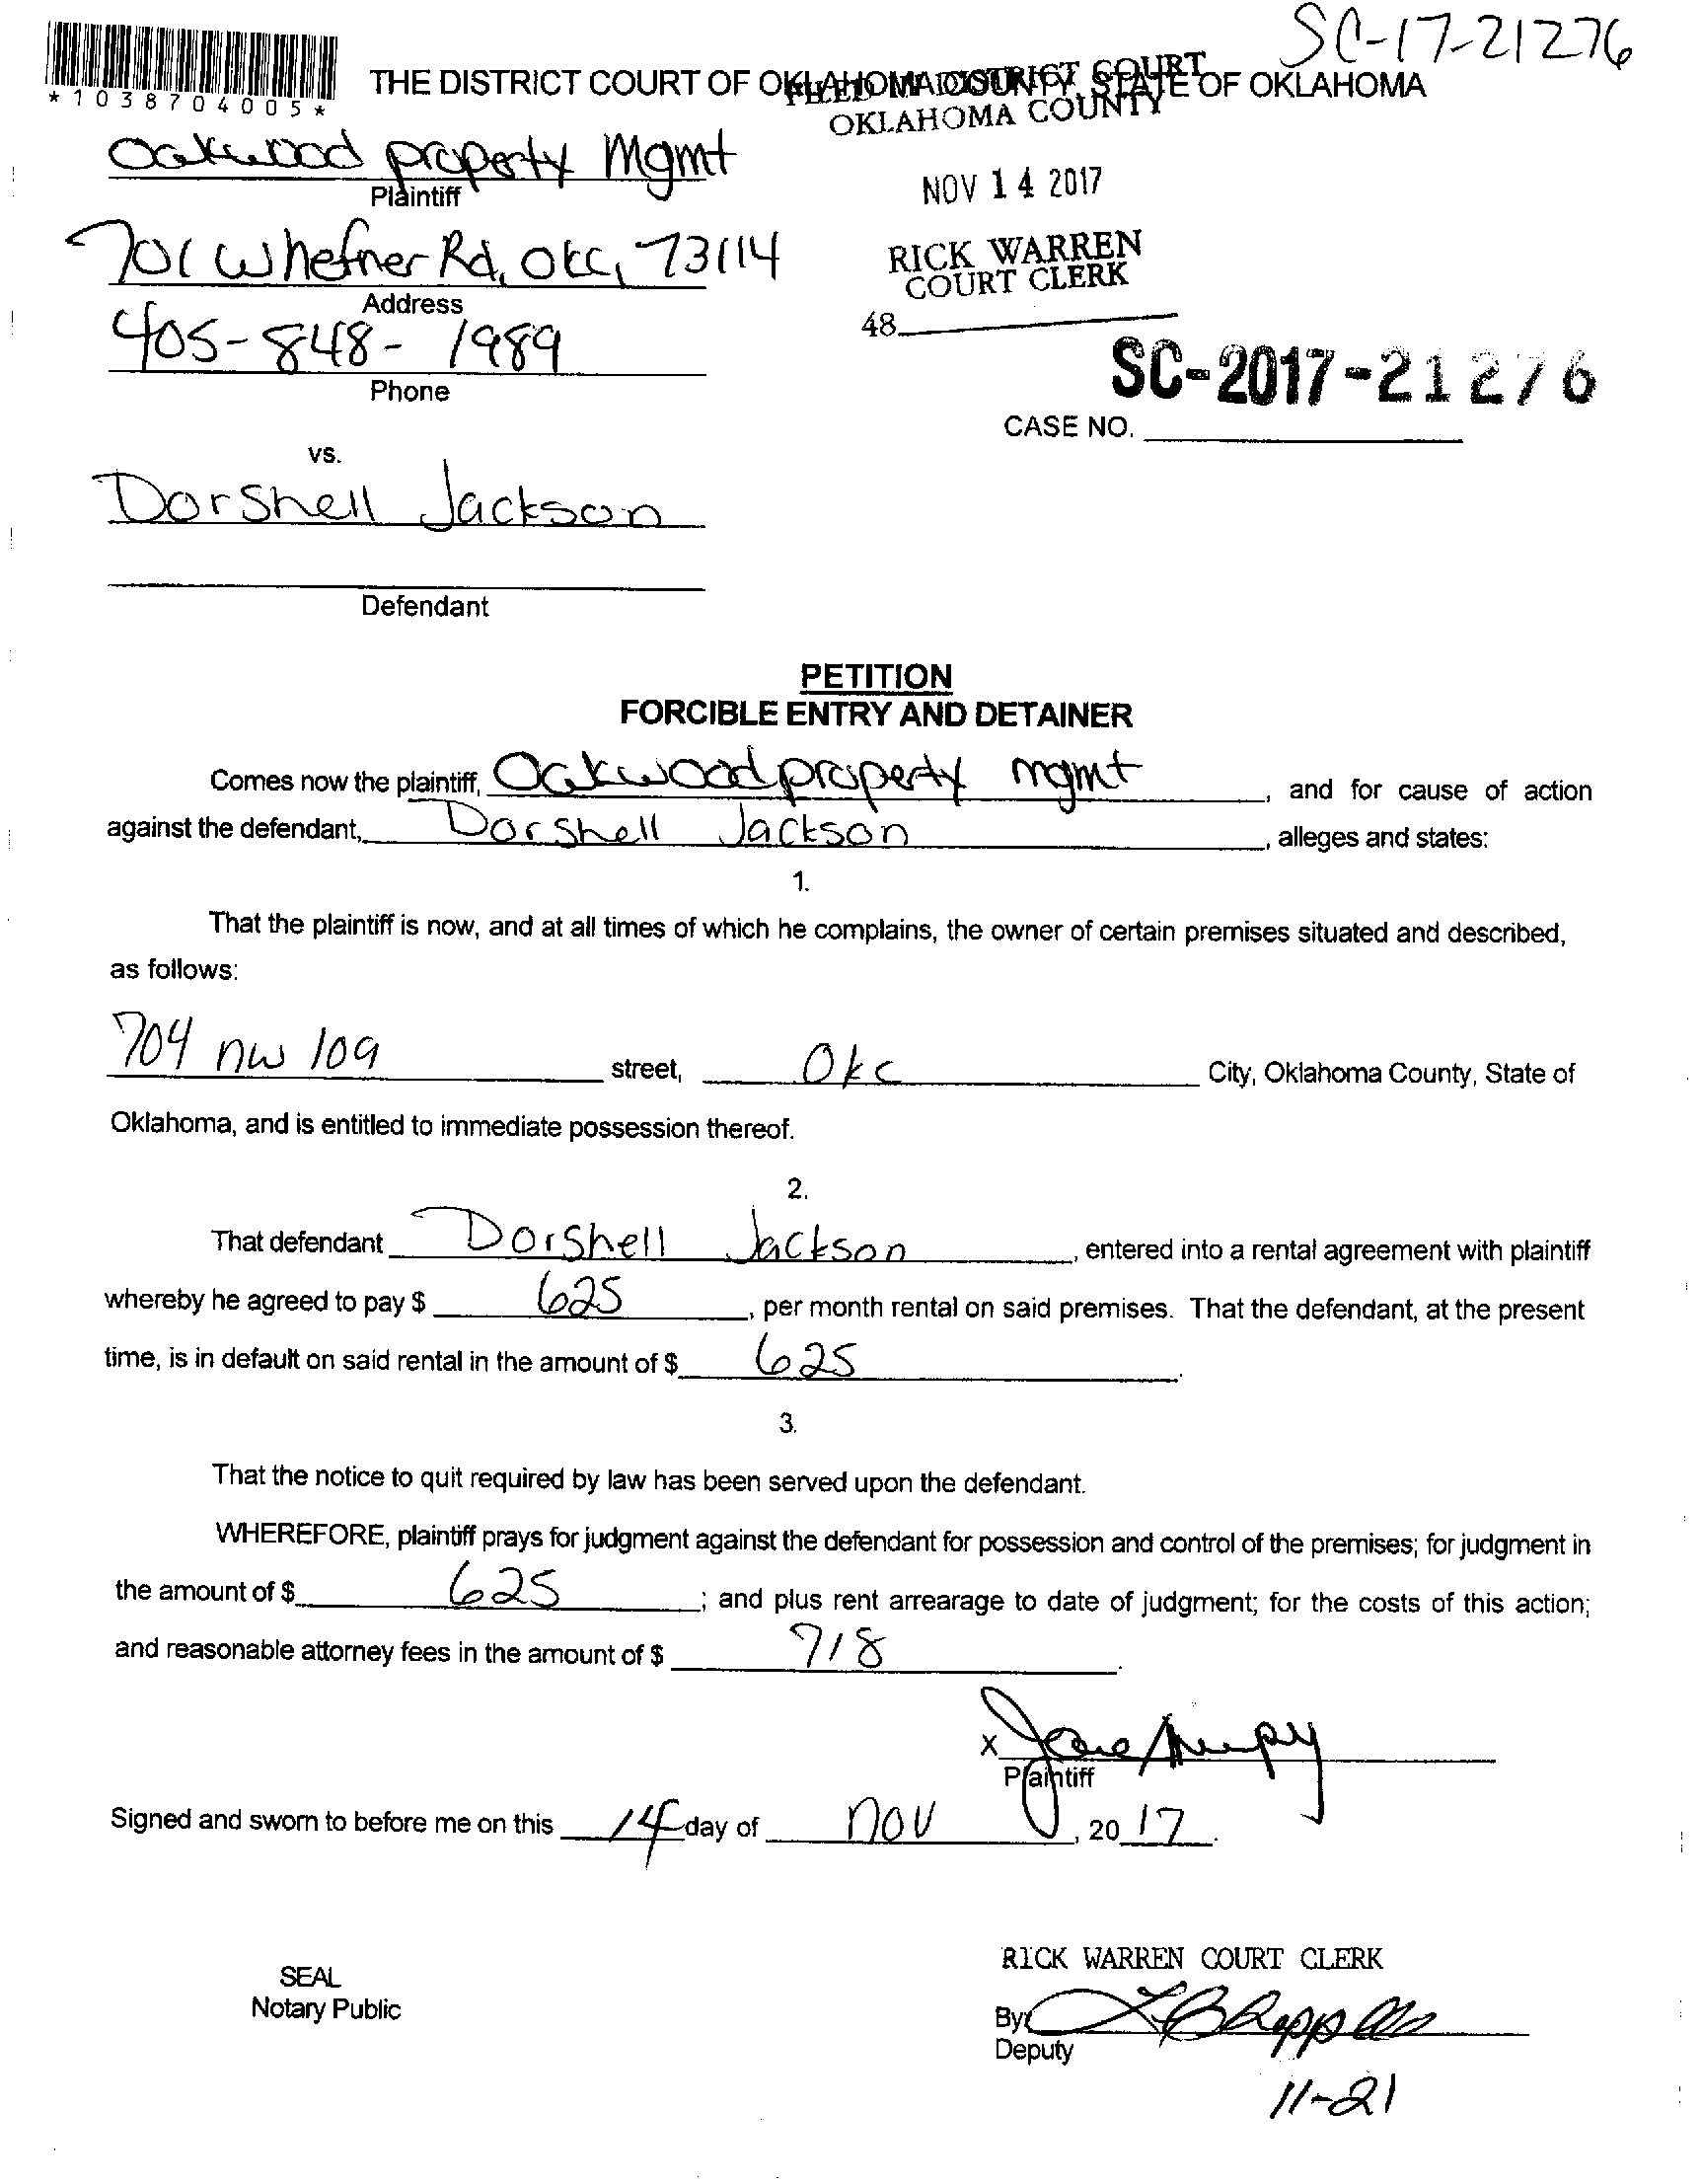 SC-17-21276
*1038704005*
THE DISTRICT COURT OF OKLAHOMA COUNTY, STATE OF OKLAHOMA
FILED DISTRICT COURT
OKLAHOMA COUNTY
Oakwood property Mgmt
Plaintiff
NOV 14 2017
701 W hefner Rd, OKC, 73114
Address
RICK WARREN
COURT CLERK
405-848-1989
Phone
48
SC-2017-21276
CASE NO.
vs.
Dorshell Jackson
Defendant
PETITION
FORCIBLE ENTRY AND DETAINER
Comes now the plaintiff, Oakwood property mgmt, and for cause of action
against the defendant, Dorshell Jackson, alleges and states:
1.
That the plaintiff is now, and at all times of which he complains, the owner of certain premises situated and described,
as follows:
704 nw 109 street, Okc City, Oklahoma County, State of
Oklahoma, and is entitled to immediate possession thereof.
2.
That defendant Dorshell Jackson, entered into a rental agreement with plaintiff
whereby he agreed to pay $ 625, per month rental on said premises. That the defendant, at the present
time, is in default on said rental in the amount of $ 625.
3.
That the notice to quit required by law has been served upon the defendant.
WHEREFORE, plaintiff prays for judgment against the defendant for possession and control of the premises; for judgment in
the amount of $ 625; and plus rent arrearage to date of judgment; for the costs of this action;
and reasonable attorney fees in the amount of $ 718.
X
Plaintiff
Signed and sworn to before me on this 14 day of nov, 2017.
SEAL
Notary Public
RICK WARREN COURT CLERK
By:
Deputy
11-21